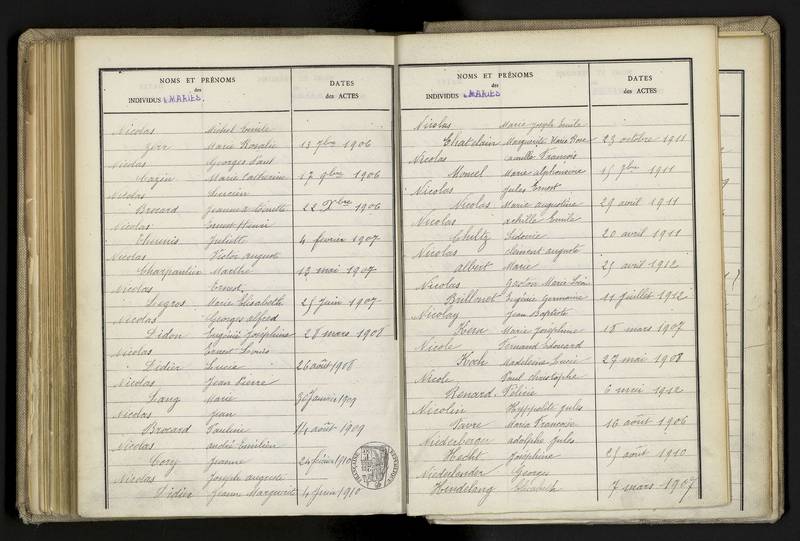 NOMS ET PRÉNOMS
des
INDIVIDUS MARIES.
DATES
des ACTES
Nicolas Michel Emile
Marie Rosalie 13 7bre 1906
Nicolas Georges Paul
Cazin Marie Catherine 17 9bre 1906
Nicolas Lucien
Brocard Jeanne 22 Xbre 1906
Nicolas Ernest Henri
Thennis Juliette 4 fevrier 1907
Nicolas Victor auguste
Charpentier Marthe 13 mai 1907
Nicolas Ernest
Legros Marie Elisabeth 25 juin 1907
Nicolas Georges alfred
Didon Eugénie Joséphine 28 mars 1908
Nicolas Ernest Louis
Didier Lucie 26 août 1908
Nicolas Jean Pierre
Lang Marie 30 Janvier 1909
Nicolas jean
Brocard Pauline 14 août 1909
Nicolas andré Emilien
Cony Jeanne 24 février 1910
Nicolas Joseph auguste
Didier Jeanne Marguerite 4 juin 1910
NOMS ET PRÉNOMS
des
INDIVIDUS MARIES
DATES
des ACTES
Nicolas Marie Joseph Emile
Chatelain Marguerite Marie Rose 23 octobre 1911
Nicolas camille François
Moncel Marie alphonsine 15 7bre 1911
Nicolas Jules Ernest
Nicolas Marie augustine 29 avril 1911
Nicolas achille Emile
Chiltz Sidonie 20 avril 1911
Nicolas clement auguste
albert Marie 25 avril 1912
Nicolas Gaston Marie Léon
Brillonet Eugénie Germaine 11 juillet 1912
Nicolay Jean Baptiste
Kern Marie Joséphine 18 mars 1907
Nicole Fernand Edouard
Koch Madeleine Lucie 27 mai 1908
Nicole Paul christophe
Renard Félicie 6 mai 1912
Nicolin Hyppolite jules
Favre Marie Françoise 16 août 1906
Niederberger adolphe jules
Hecht Joséphine 25 août 1910
Niederlander Georges
Hindelang Elisabeth 7 mars 1907